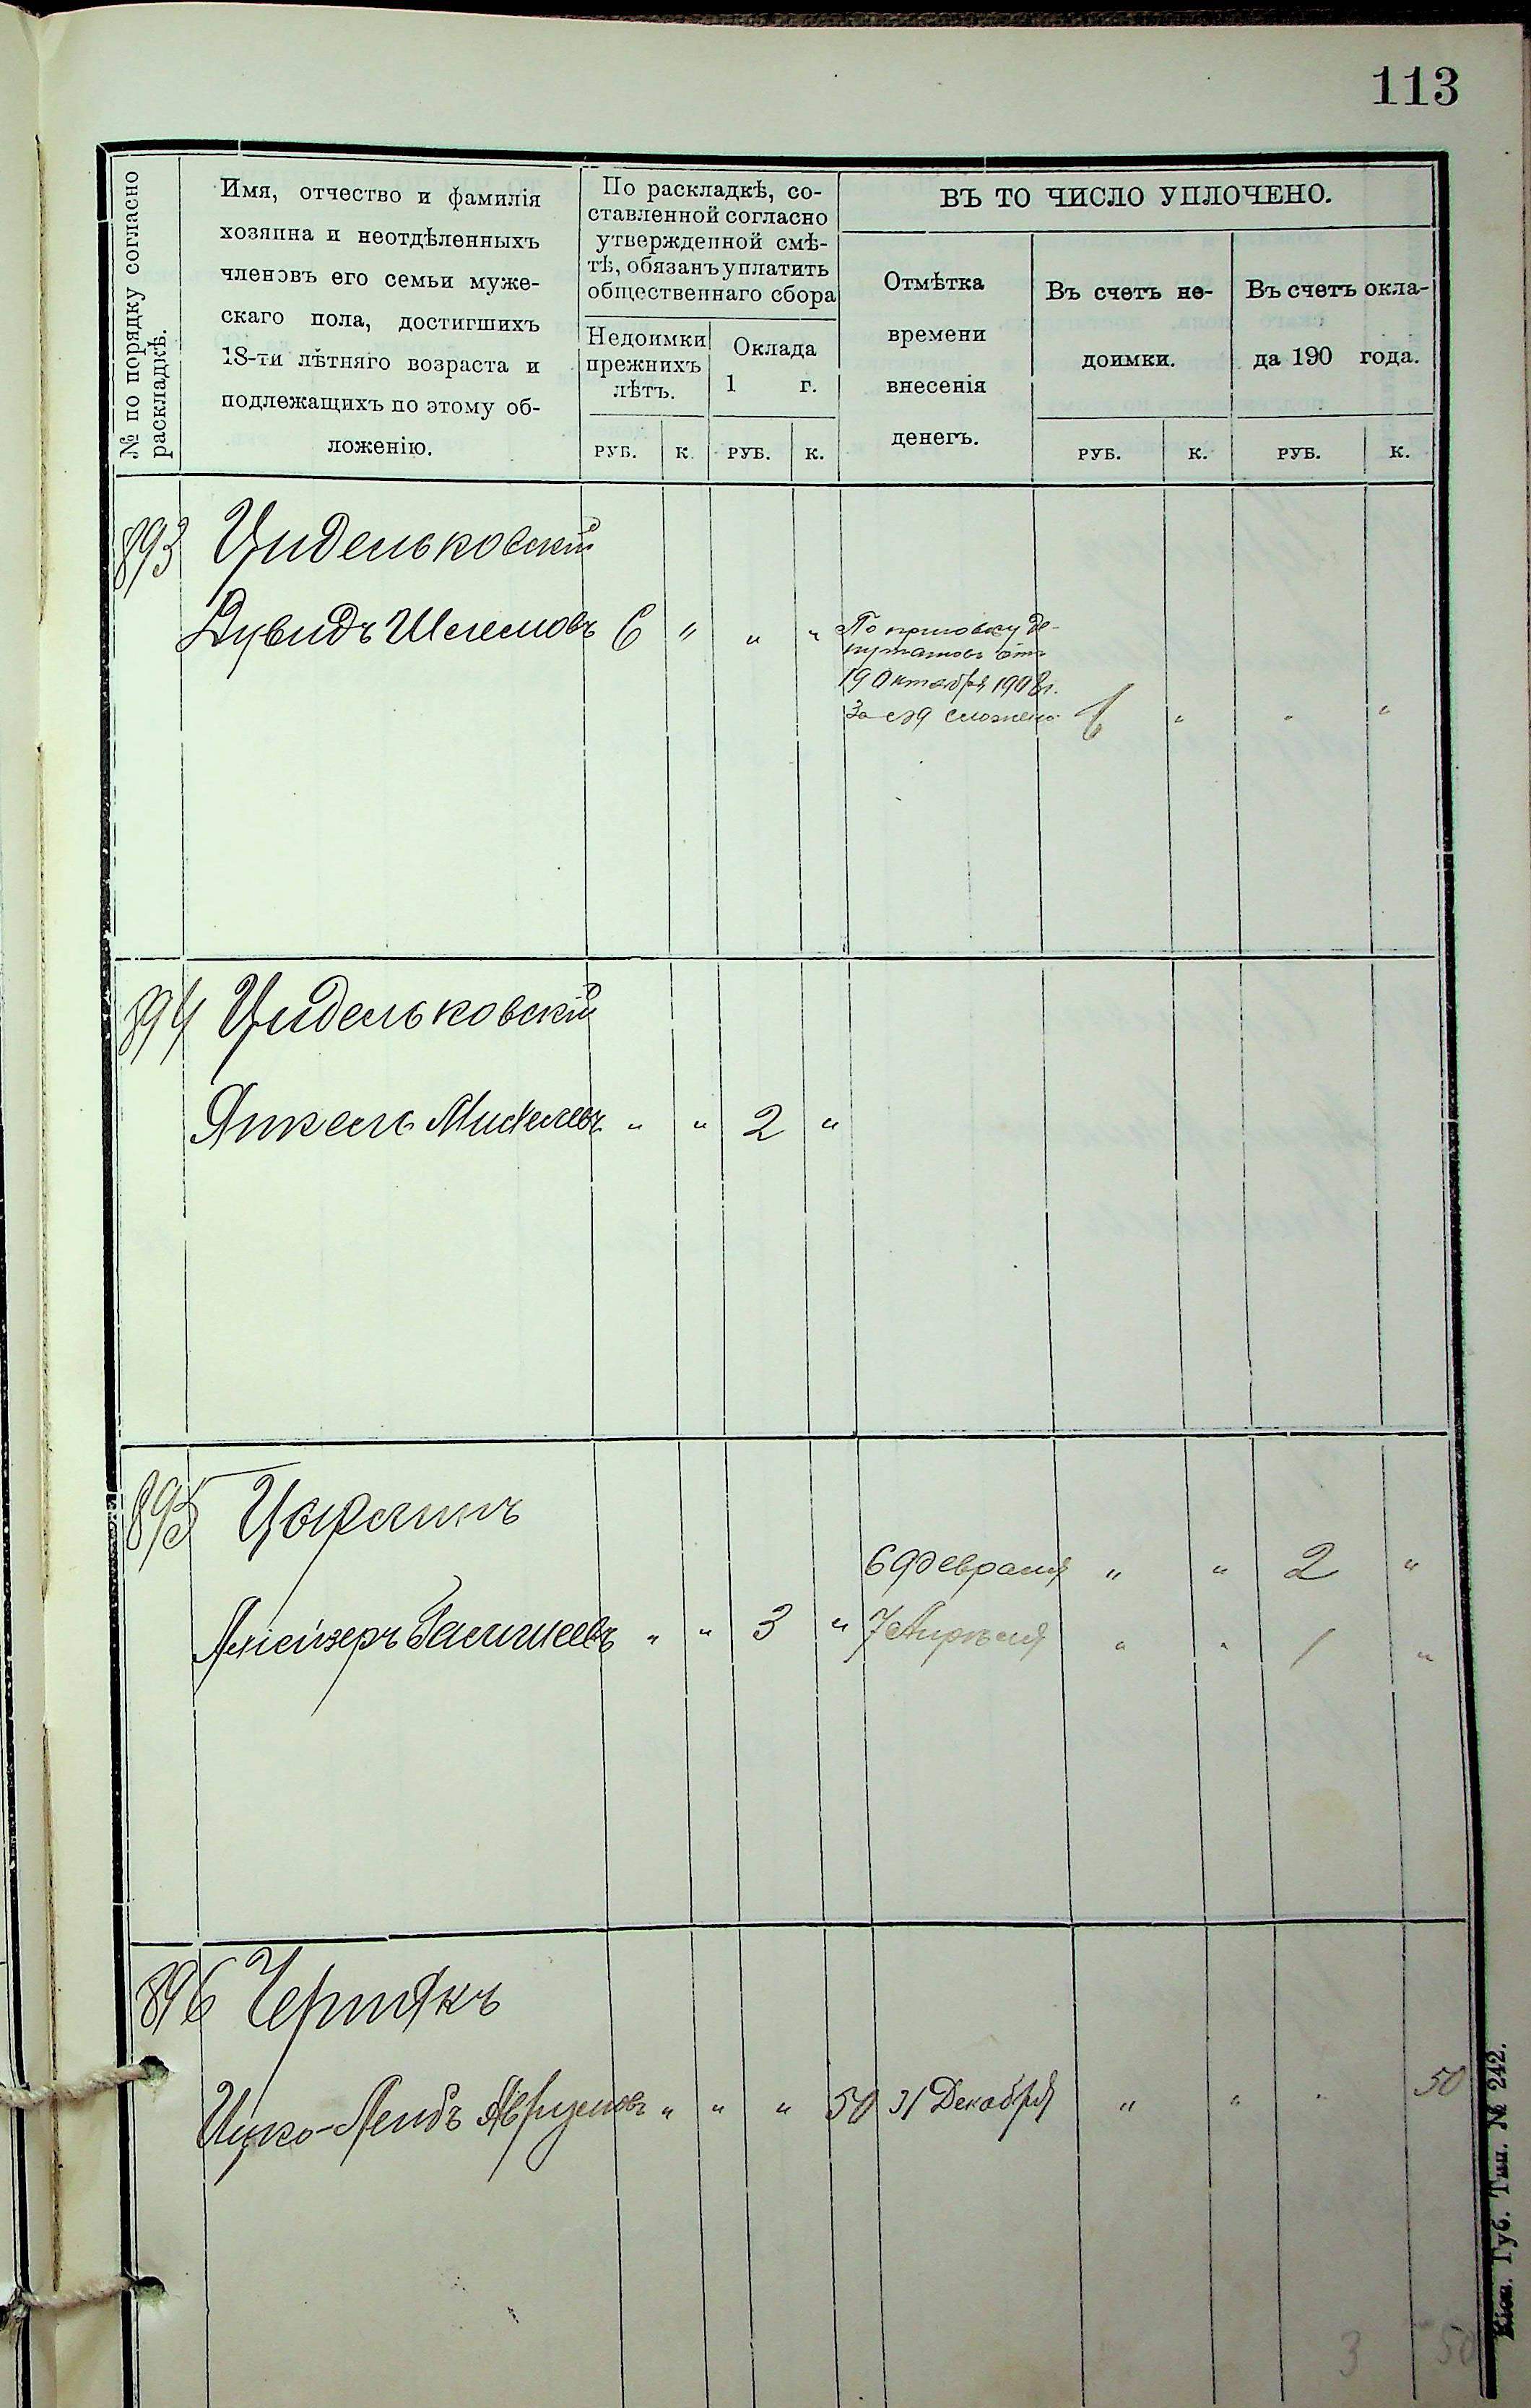 113
№ по порядку согласно
раскладкѣ.
Имя, отчество и фамилія
хозяина и неотдѣленныхъ
членовъ его семьи муже-
скаго пола, достигшихъ
18-ти лѣтняго возраста и
подлежащихъ по этому об-
ложенію.
По раскладкѣ, со-
ставленной согласно
утвержденной смѣ-
тѣ, обязанъ уплатить
общественнаго сбора
Недоимки
прежнихъ
лѣтъ.
Оклада
1 г.
ВЪ ТО ЧИСЛО УПЛОЧЕНО.
Отмѣтка
времени
внесенія
денегъ.
Въ счетъ не-
доимки.
Въ счетъ окла-
да 190 года.
РУБ. К. РУБ. К. РУБ. К. РУБ. К.
893 Цидельковскій
Дувидъ Шлемовъ 6 " " " По приговору де-
путатовъ отъ
19 Октября 1908г.
За № сложено 6 " " "
894 Цидельковскій
Янкель Михелевъ " " 2 "
895 Цирлинъ
6 Февраля " " 2 "
" " 3 " 7 Апрѣля " " 1 "
896 Чернякъ
Ицко-Лейбъ Аврумовъ " " " 50 31 Декабря " " " 50
3 50
Кіев. Губ. Тип. № 242.